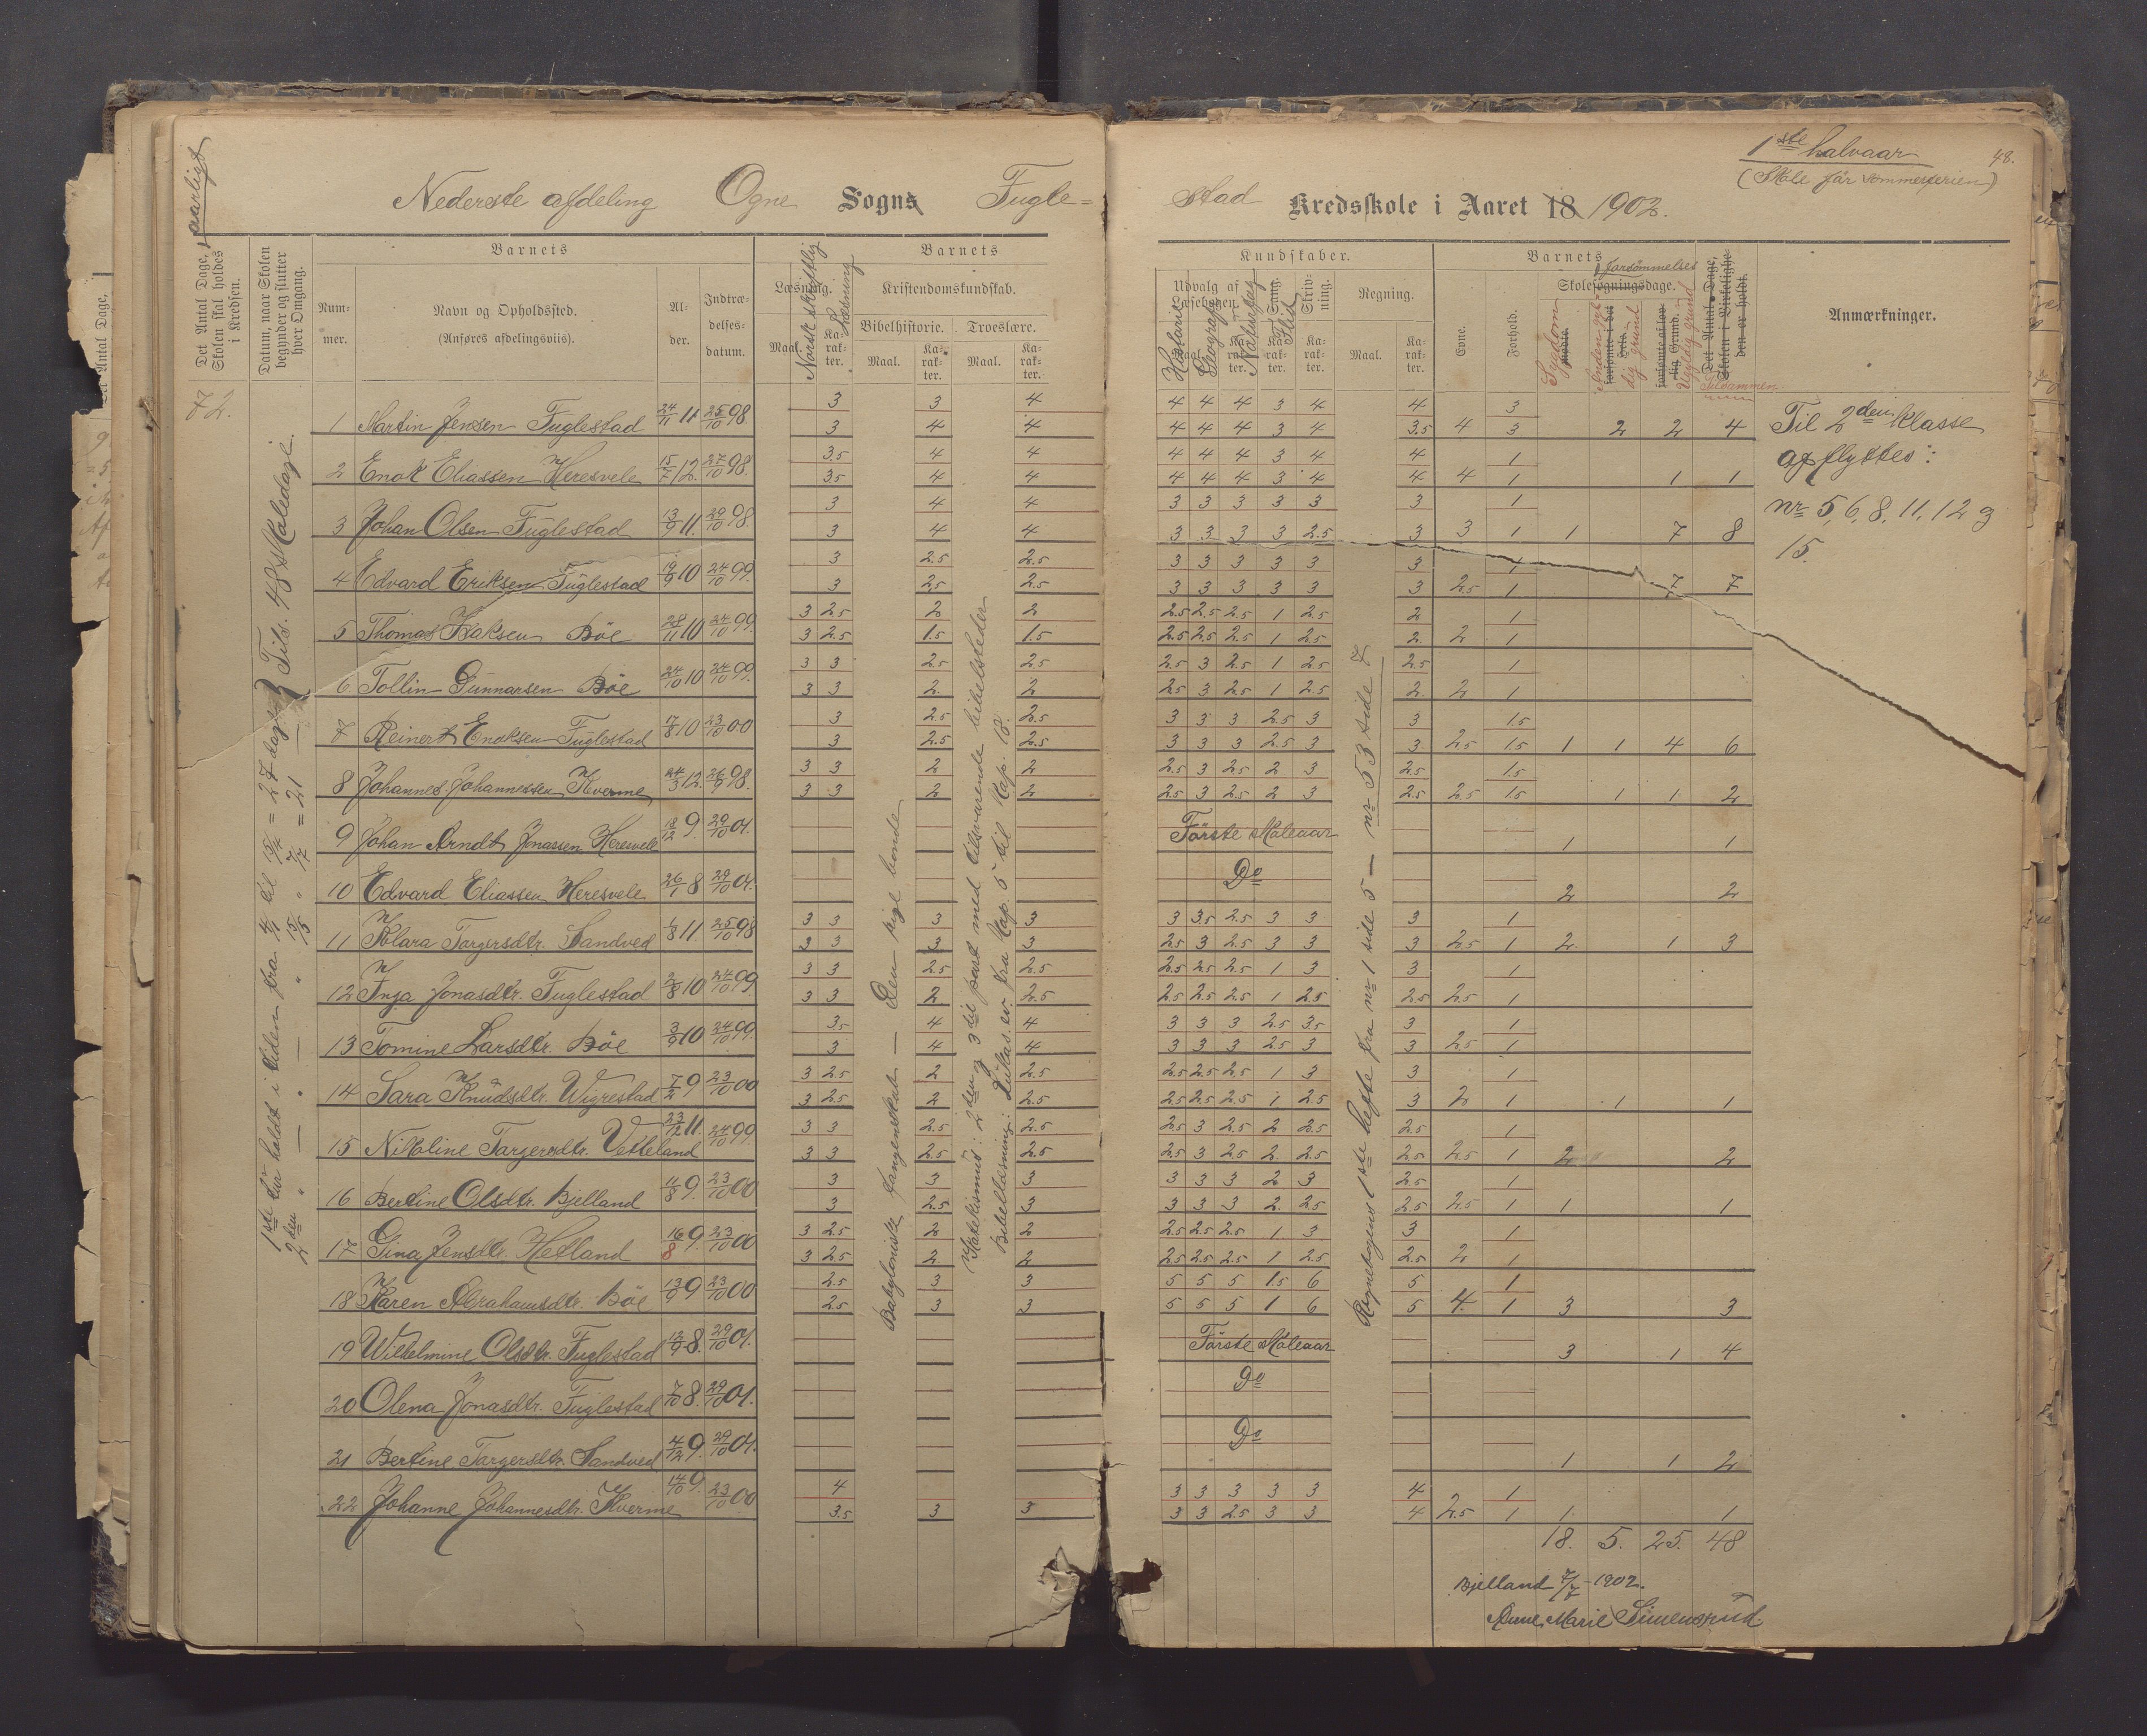 1ste halvaar
(Skole før sommerferien)
48.
Nederste afdeling Ogne Sogns Fugle=
stad Kredsskole i Aaret 18 1902.
aarligt
Det Antal Dage, Skolen skal holdes i Kredsen.
Datum, naar Skolen begynder og slutter hver Omgang.
Barnets
Num-mer.
Navn og Opholdssted.
(Anføres afdelingsviis).
Al-der.
Indtræ-delses-datum.
Barnets
Læsning.
Norsk skriftlig
Læsning
Kristendomskundskab.
Bibelhistorie.
Troeslære.
Maal.
Ka-rak-ter.
Maal.
Ka-rak-ter.
Maal.
Ka-rak-ter.
Kundskaber.
Udvalg af Læsebogen.
Historie
Geografi
Naturfag
Sang.
Flid
Skriv-ning.
Regning.
Maal.
Ka-rak-ter.
Barnets
Evne.
Forhold.
forsømmelses
Skolesøgningsdage.
Sygdom
Ugyldig grund
Tilsammen
Det Antal Dage, Skolen i Virkelighe-den er holdt.
Anmærkninger.
72.
1ste tür holdt i tiden fra 4/4 til 15/4 = 27 dage
2den " — " — " 15/5 " 7/7 = 21 —
Tils. 48 skoledage.
Babyloniske fangenskab — Den rige bonde
Katekismus: 2den og 3die part med tilsvarende bibelsteder
Bibellæsning: Lukas. ev. fra Kap. 5 til Kap. 18
Regnebogens 1ste hefte fra nr 1 side 5 — nr 53 side 7
1 Martin Jensen Fuglestad 24/11 11 25/10 98 3 3 4 4 4 4 3 4 4 3
3 4 4 4 4 4 3 4 3.5 4 3 2 2 4
2 Enok Eliassen Heresvele 15/7 12. 27/10 98. 3.5 4 4 4 4 4 3 4 4 1
3.5 4 4 4 4 4 3 4 4 4 1 1 1
3 Johan Olsen Fuglestad 13/9 11. 29/10 98. 3 4 4 3 3 3 3 3 3 1
3 4 4 3 3 3 3 2.5 3 3 1 1 7 8
4 Edvard Eriksen Fuglestad 19/9 10 24/10 99. 3 2.5 2.5 3 3 3 3 3 3 1
3 2.5 2.5 3 3 3 3 3 3 2.5 1 7 7
5 Thomas Isaksen Böe 28/11 10 24/10 99. 3 2.5 2 2 2.5 2.5 2.5 1 2.5 2 1
3 2.5 1.5 1.5 2.5 2.5 2.5 1 2.5 2. 2 1
6 Tollin Gunnarsen Böe 24/10 10 24/10 99. 3 3 2.5 2.5 2.5 3 2.5 1 2.5 2.5 1
3 3 2. 2 2.5 3 2.5 1 2.5 2. 2 1
7 Reinert Enoksen Fuglestad 17/8 10 23/10 00 3 2.5 2.5 3 3 3 2.5 3 3 1.5
3 2.5 2.5 3 3 3 2.5 3 3 2.5 1.5 1 1 4 6
8 Johannes Johannessen Kverme 24/3 12. 26/9 98. 3 3 2 2 2.5 3 2.5 2 3 2.5 1.5
3 3 2 2 2.5 3 2.5 2 3 2.5 2.5 1.5 1 1 2
9 Johan Arndt Jonassen Heresvele 18/12 9 29/10 01. Förste skoleaar 1 1
10 Edvard Eliassen Heresvele 26/1 8 29/10 01. Do 2 2
11 Klara Targersdtr. Sandved 6/8 11. 25/10 98 3 3 3 3 3 3.5 2.5 3 3 3 1
3 3 3 3 2.5 3 2.5 3 3 3 2.5 1 2. 1 3
12 Inga Jonasdtr. Fuglestad 2/8 10 24/10 99. 3 3 2.5 2.5 2.5 2.5 2.5 1 3 3 1
3 3 2 2.5 2.5 2.5 2.5 1 2.5 2.5 2.5 1
13 Tomine Larsdtr. Böe 3/9 10 24/10 99. 3.5 4 4 3 3 3 2.5 3.5 3 1
3 4 4 3 3 3 2.5 3 3 2.5 1
14 Sara Knudsdtr. Wigrestad 7/2 9 23/10 00 3 2.5 2 2.5 2.5 2.5 2.5 1 3 3 1
3 2.5 2 2.5 2.5 2.5 2.5 1 2.5 3 2 1 1 1
15 Nikoline Targersdtr. Vetteland 23/12 11. 24/10 99 3 3 2.5 2.5 2.5 3 2.5 2 2.5 2.5 1
3 3 2.5 2.5 2.5 3 2.5 2. 2.5 2.5 2.5 1 2 2
16 Bertine Olsdtr. Bjelland 11/8 9. 23/10 00 3 3 3 3 3 3 2 3 2.5 1
3 2.5 3 3 3 3 2. 2.5 2.5 2.5 1 1 1
17 Gina Jensdtr. Hetland 16/8 9. 23/10 00 3 2.5 2 2 2.5 2.5 2.5 1 3 3 1
3 2.5 2 2 2.5 2.5 2.5 1 2.5 2.5 2 1
18 Karen Abrahamsdtr. Böe 13/9 9 23/10 00 2.5 3 3 5 5 5 1.5 6 5 1
2.5 3 3 5 5 5 1 6 5 4. 1 3 3
19 Wilhelmine Olsdtr. Fuglestad 12/9 8. 29/10 01. Förste skoleaar 3 1 4
20 Olena Jonasdtr. Fuglestad 7/10 8. 29/10 01. Do
21 Bertine Targersdtr. Sandved 4/12 9. 29/10 01. Do 1 1 2
22 Johanne Johannesdtr. Kverme 14/10 9. 23/10 00 4 3 3 3 3 3 4 1
3.5 3 3 3 3 2.5 3 3 4 2.5 1 1. 1
18. 5. 25. 48
Til 2den klasse
opflyttes:
nr 5, 6, 8, 11, 12 og
15.
Bjelland 7/7 - 1902.
Anne Marie Simensrud.